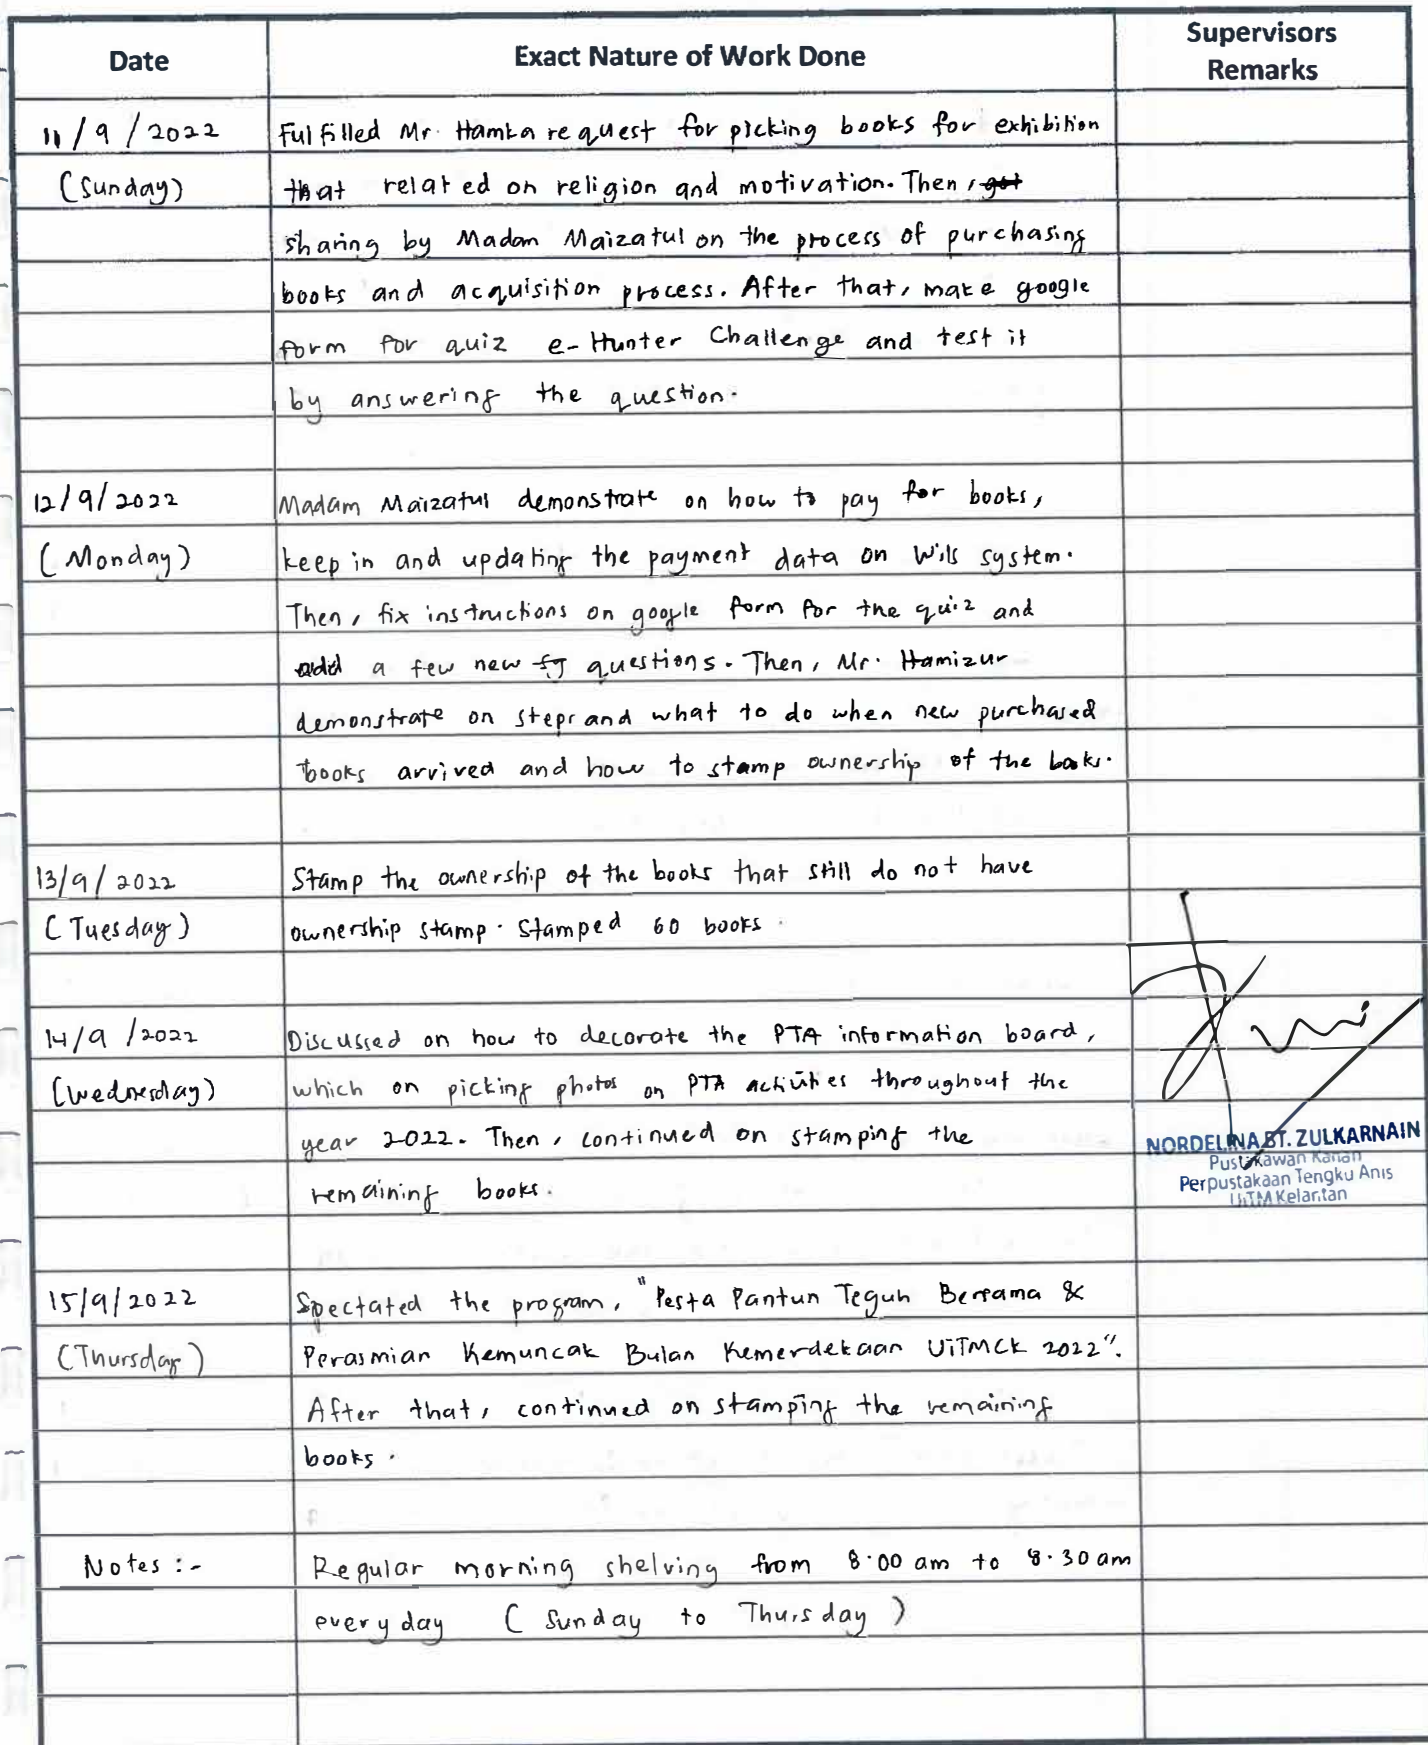 Date
Exact Nature of Work Done
Supervisors
Remarks
11/9/2022
Fulfilled Mr. Hamka request for picking books for exhibition
(Sunday)
that related on religion and motivation. Then, got
sharing by Madam Maizatul on the process of purchasing
books and acquisition process. After that, make google
form for quiz e-Hunter Challenge and test it
by answering the question.
12/9/2022
Madam Maizatul demonstrate on how to pay for books,
(Monday)
keep in and updating the payment data on Wils system.
Then, fix instructions on google form for the quiz and
add a few new questions. Then, Mr. Hamizur
demonstrate on steps and what to do when new purchased
books arrived and how to stamp ownership of the books.
13/9/2022
Stamp the ownership of the books that still do not have
(Tuesday)
ownership stamp. Stamped 60 books.
14/9/2022
Discussed on how to decorate the PTA information board,
(Wednesday)
which on picking photos on PTA activities throughout the
year 2022. Then, continued on stamping the
remaining books.
NORDELINA BT. ZULKARNAIN
Pustakawan Kanan
Perpustakaan Tengku Anis
UiTM Kelantan
15/9/2022
Spectated the program, "Pesta Pantun Teguh Bersama &
(Thursday)
Perasmian Kemuncak Bulan Kemerdekaan UiTMCK 2022".
After that, continued on stamping the remaining
books.
Notes :-
Regular morning shelving from 8.00 am to 8.30 am
everyday (Sunday to Thursday)